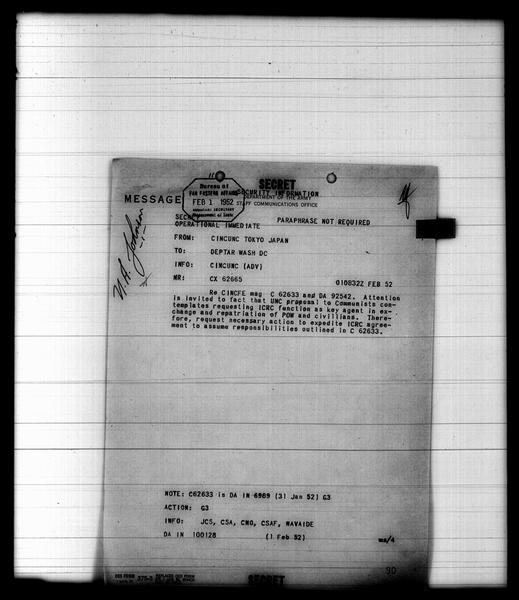 SECRET
SECURITY INFORMATION
DEPARTMENT OF THE ARMY
STAFF COMMUNICATIONS OFFICE
Bureau of
FAR EASTERN AFFAIRS
FEB 1 1952
Department of State
MESSAGE
PARAPHRASE NOT REQUIRED
OPERATIONAL IMMEDIATE
FROM: CINCUNC TOKYO JAPAN
TO: DEPTAR WASH DC
INFO: CINCUNC (ADV)
NR: CX 62665 010832Z FEB 52
Re CINCFE msg C 62633 and DA 92542. Attention
is invited to fact that UNC proposal to Communists con-
templates requesting ICRC function as key agent in ex-
change and repatriation of POW and civilians. There-
fore, request necessary action to expedite ICRC agree-
ment to assume responsibilities outlined in C 62633.
NOTE: C62633 is DA IN 6989 (31 Jan 52) G3
ACTION: G3
INFO: JCS, CSA, CNO, CSAF, NAVAIDE
DA IN 100128 (1 Feb 52)
90
375-3
SECRET